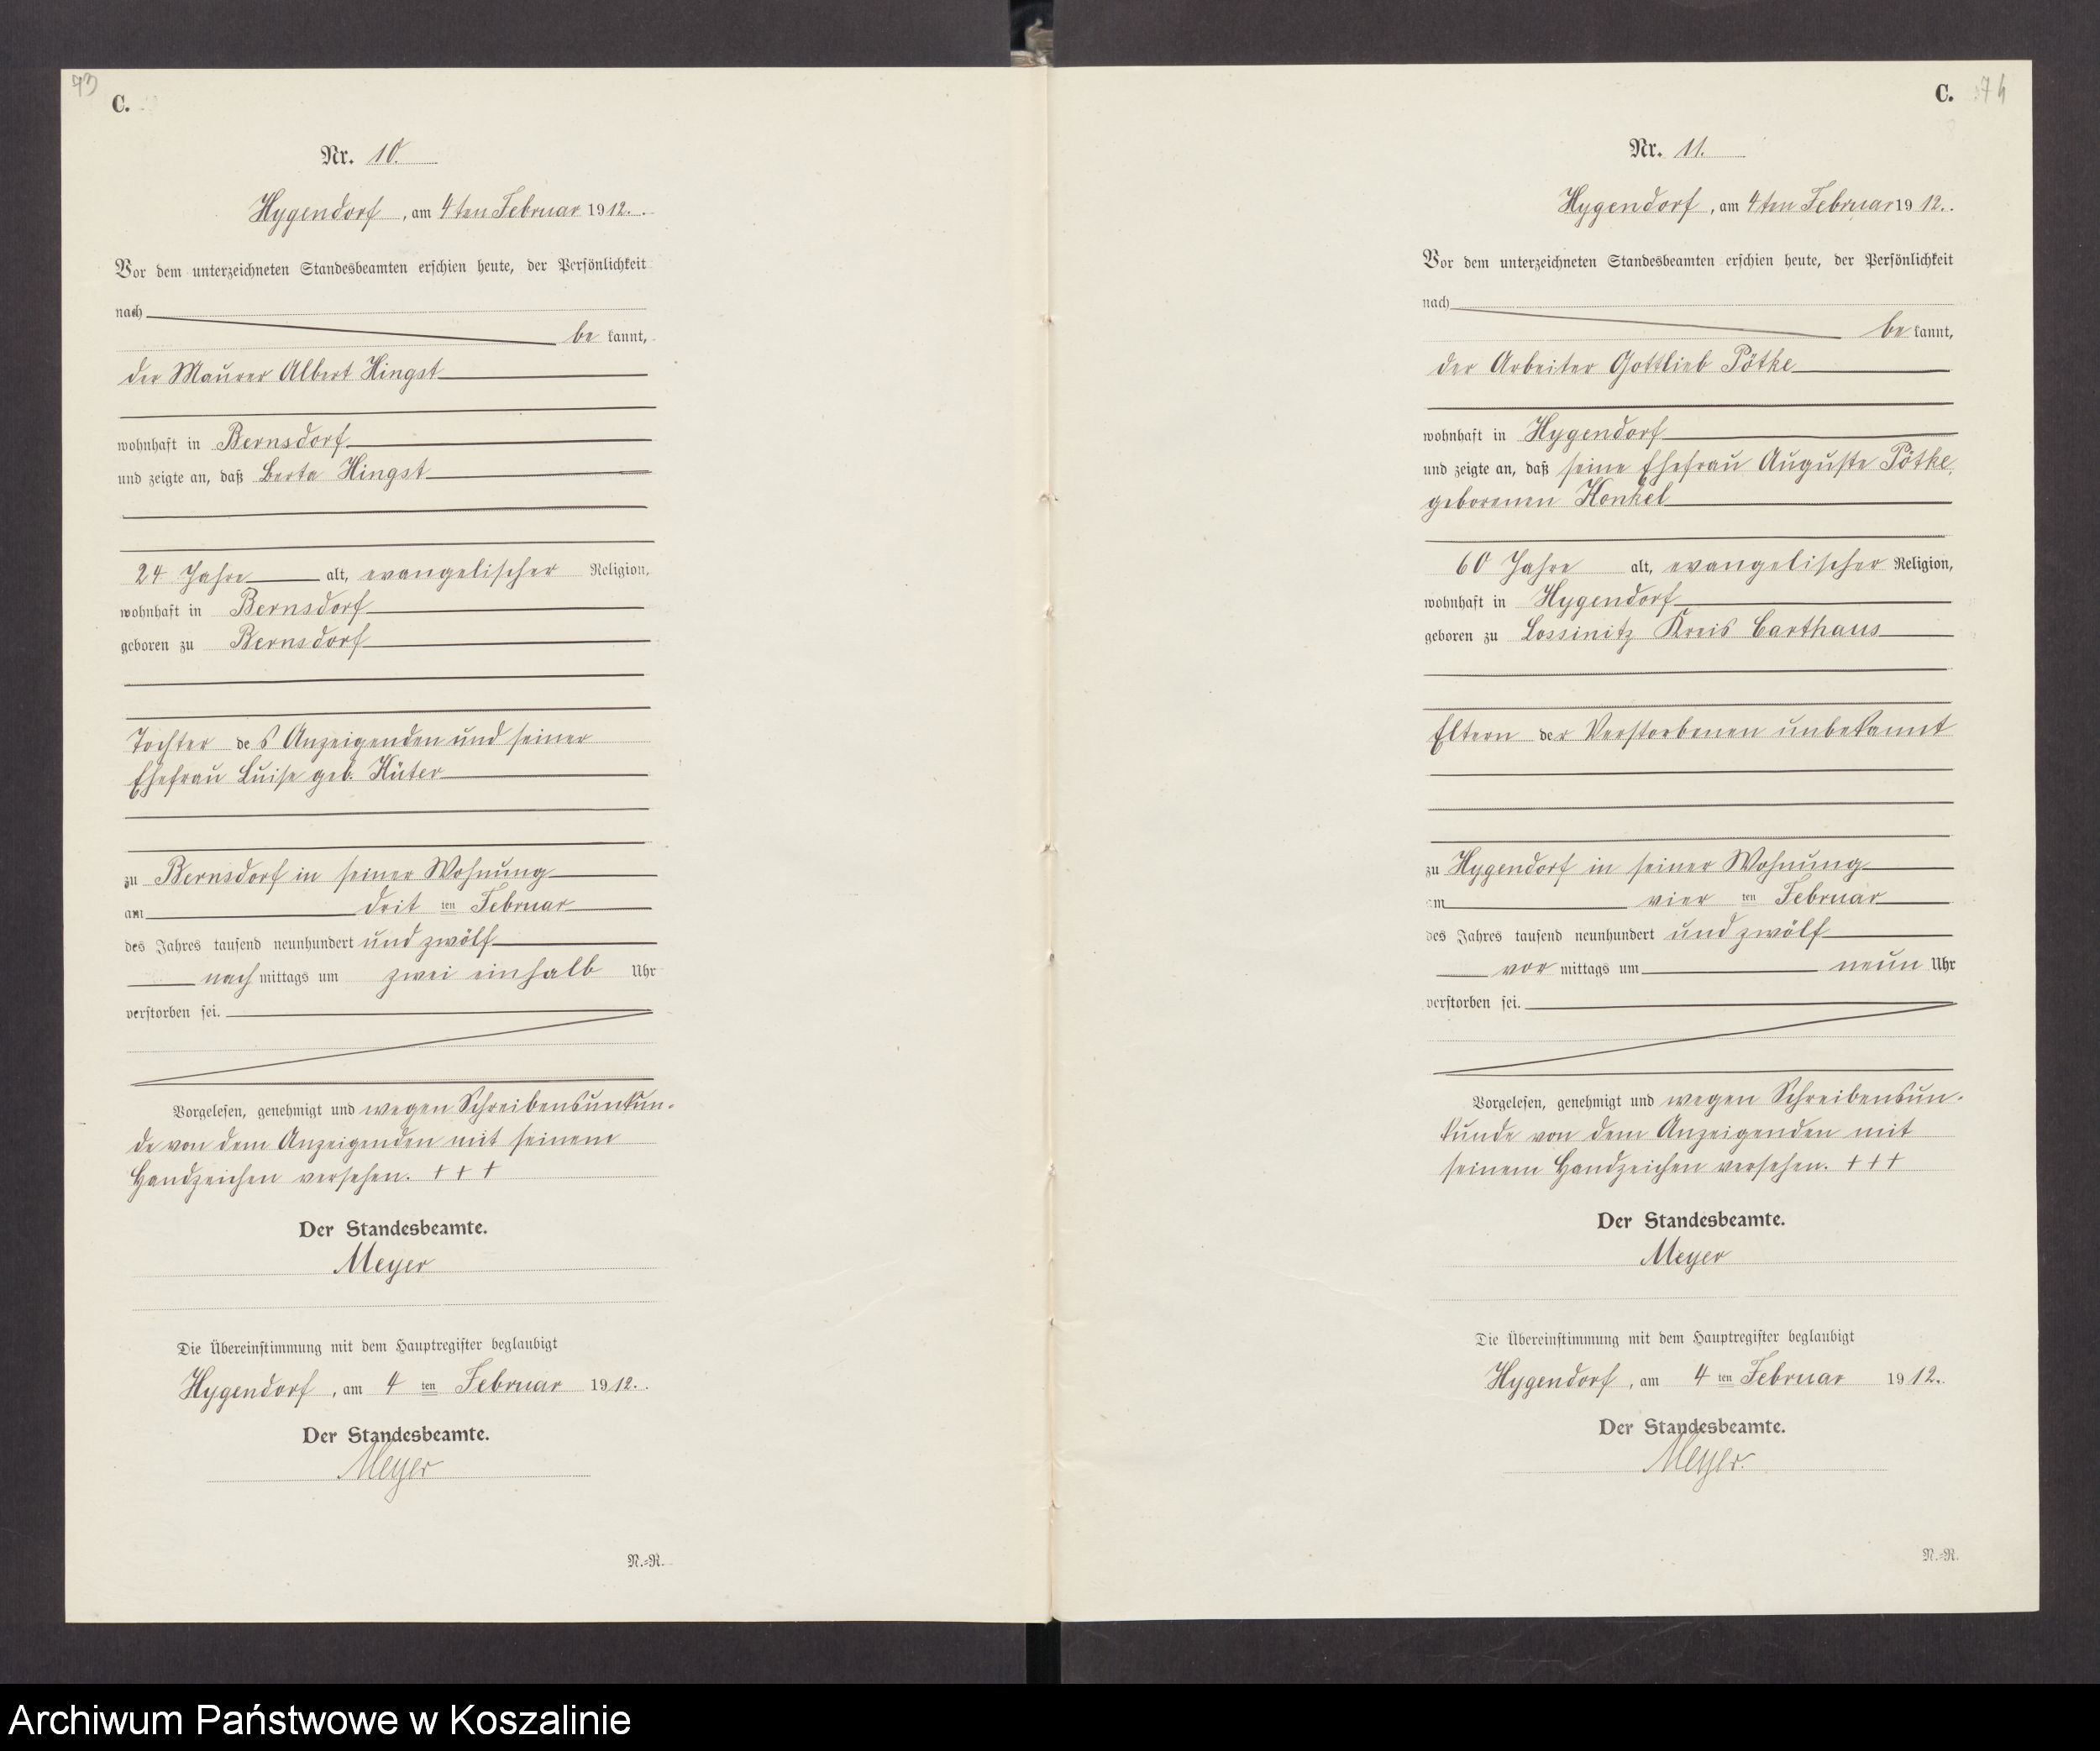 73
C.
Nr. 10.
Hygendorf, am 4ten Februar 1912.
Vor dem unterzeichneten Standesbeamten erschien heute, der Persönlichkeit
nach
be kannt,
der Maurer Albert Hingst
wohnhaft in Bernsdorf
und zeigte an, daß Berta Hingst
24 Jahre alt, evangelischer Religion,
wohnhaft in Bernsdorf
geboren zu Bernsdorf
Tochter des Anzeigenden und seiner
Ehefrau Luise geb. Küter
zu Bernsdorf in seiner Wohnung
am drit ten Februar
des Jahres tausend neunhundert und zwölf
nach mittags um zwei einhalb Uhr
verstorben sei.
Vorgelesen, genehmigt und wegen Schreibensunkun-
de von dem Anzeigenden mit seinem
Handzeichen versehen. + + +
Der Standesbeamte.
Meyer
Die Übereinstimmung mit dem Hauptregister beglaubigt
Hygendorf, am 4 ten Februar 1912.
Der Standesbeamte.
Meyer
N.=R.
C. 74
Nr. 11.
Hygendorf, am 4ten Februar 1912.
Vor dem unterzeichneten Standesbeamten erschien heute, der Persönlichkeit
nach
be kannt,
der Arbeiter Gottlieb Pötke
wohnhaft in Hygendorf
und zeigte an, daß seine Ehefrau Auguste Pötke,
geborenen Konkel
60 Jahre alt, evangelischer Religion,
wohnhaft in Hygendorf
geboren zu Lossinitz Kreis Carthaus
Eltern der Verstorbenen unbekannt
zu Hygendorf in seiner Wohnung
am vier ten Februar
des Jahres tausend neunhundert und zwölf
vor mittags um neun Uhr
verstorben sei.
Vorgelesen, genehmigt und wegen Schreibensun-
kunde von dem Anzeigenden mit
seinem Handzeichen versehen. + + +
Der Standesbeamte.
Meyer
Die Übereinstimmung mit dem Hauptregister beglaubigt
Hygendorf, am 4 ten Februar 1912.
Der Standesbeamte.
Meyer.
N.=R.
Archiwum Państwowe w Koszalinie